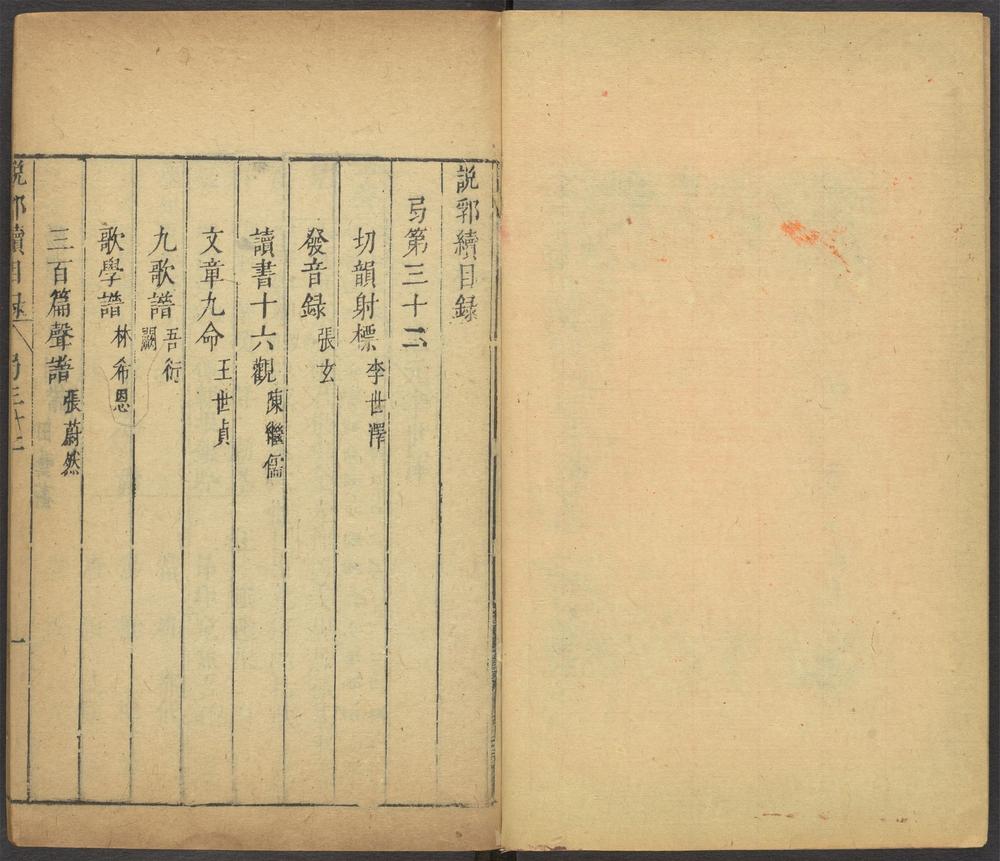 説郛續目録
弓第三十二
切韻射標 李世澤
發音録 張玄
讀書十六觀 陳繼儒
文章九命 王世貞
九歌譜 吾衍 闕
歌學譜 林希恩
三百篇聲譜 張蔚然
説郛續目録 弓三十二 一